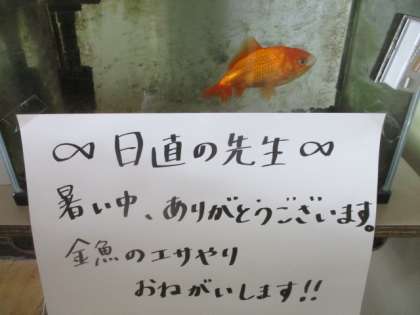 ∞ 日直の先生 ∞
暑い中、ありがとうございます。
金魚のエサやり
おねがいします!!